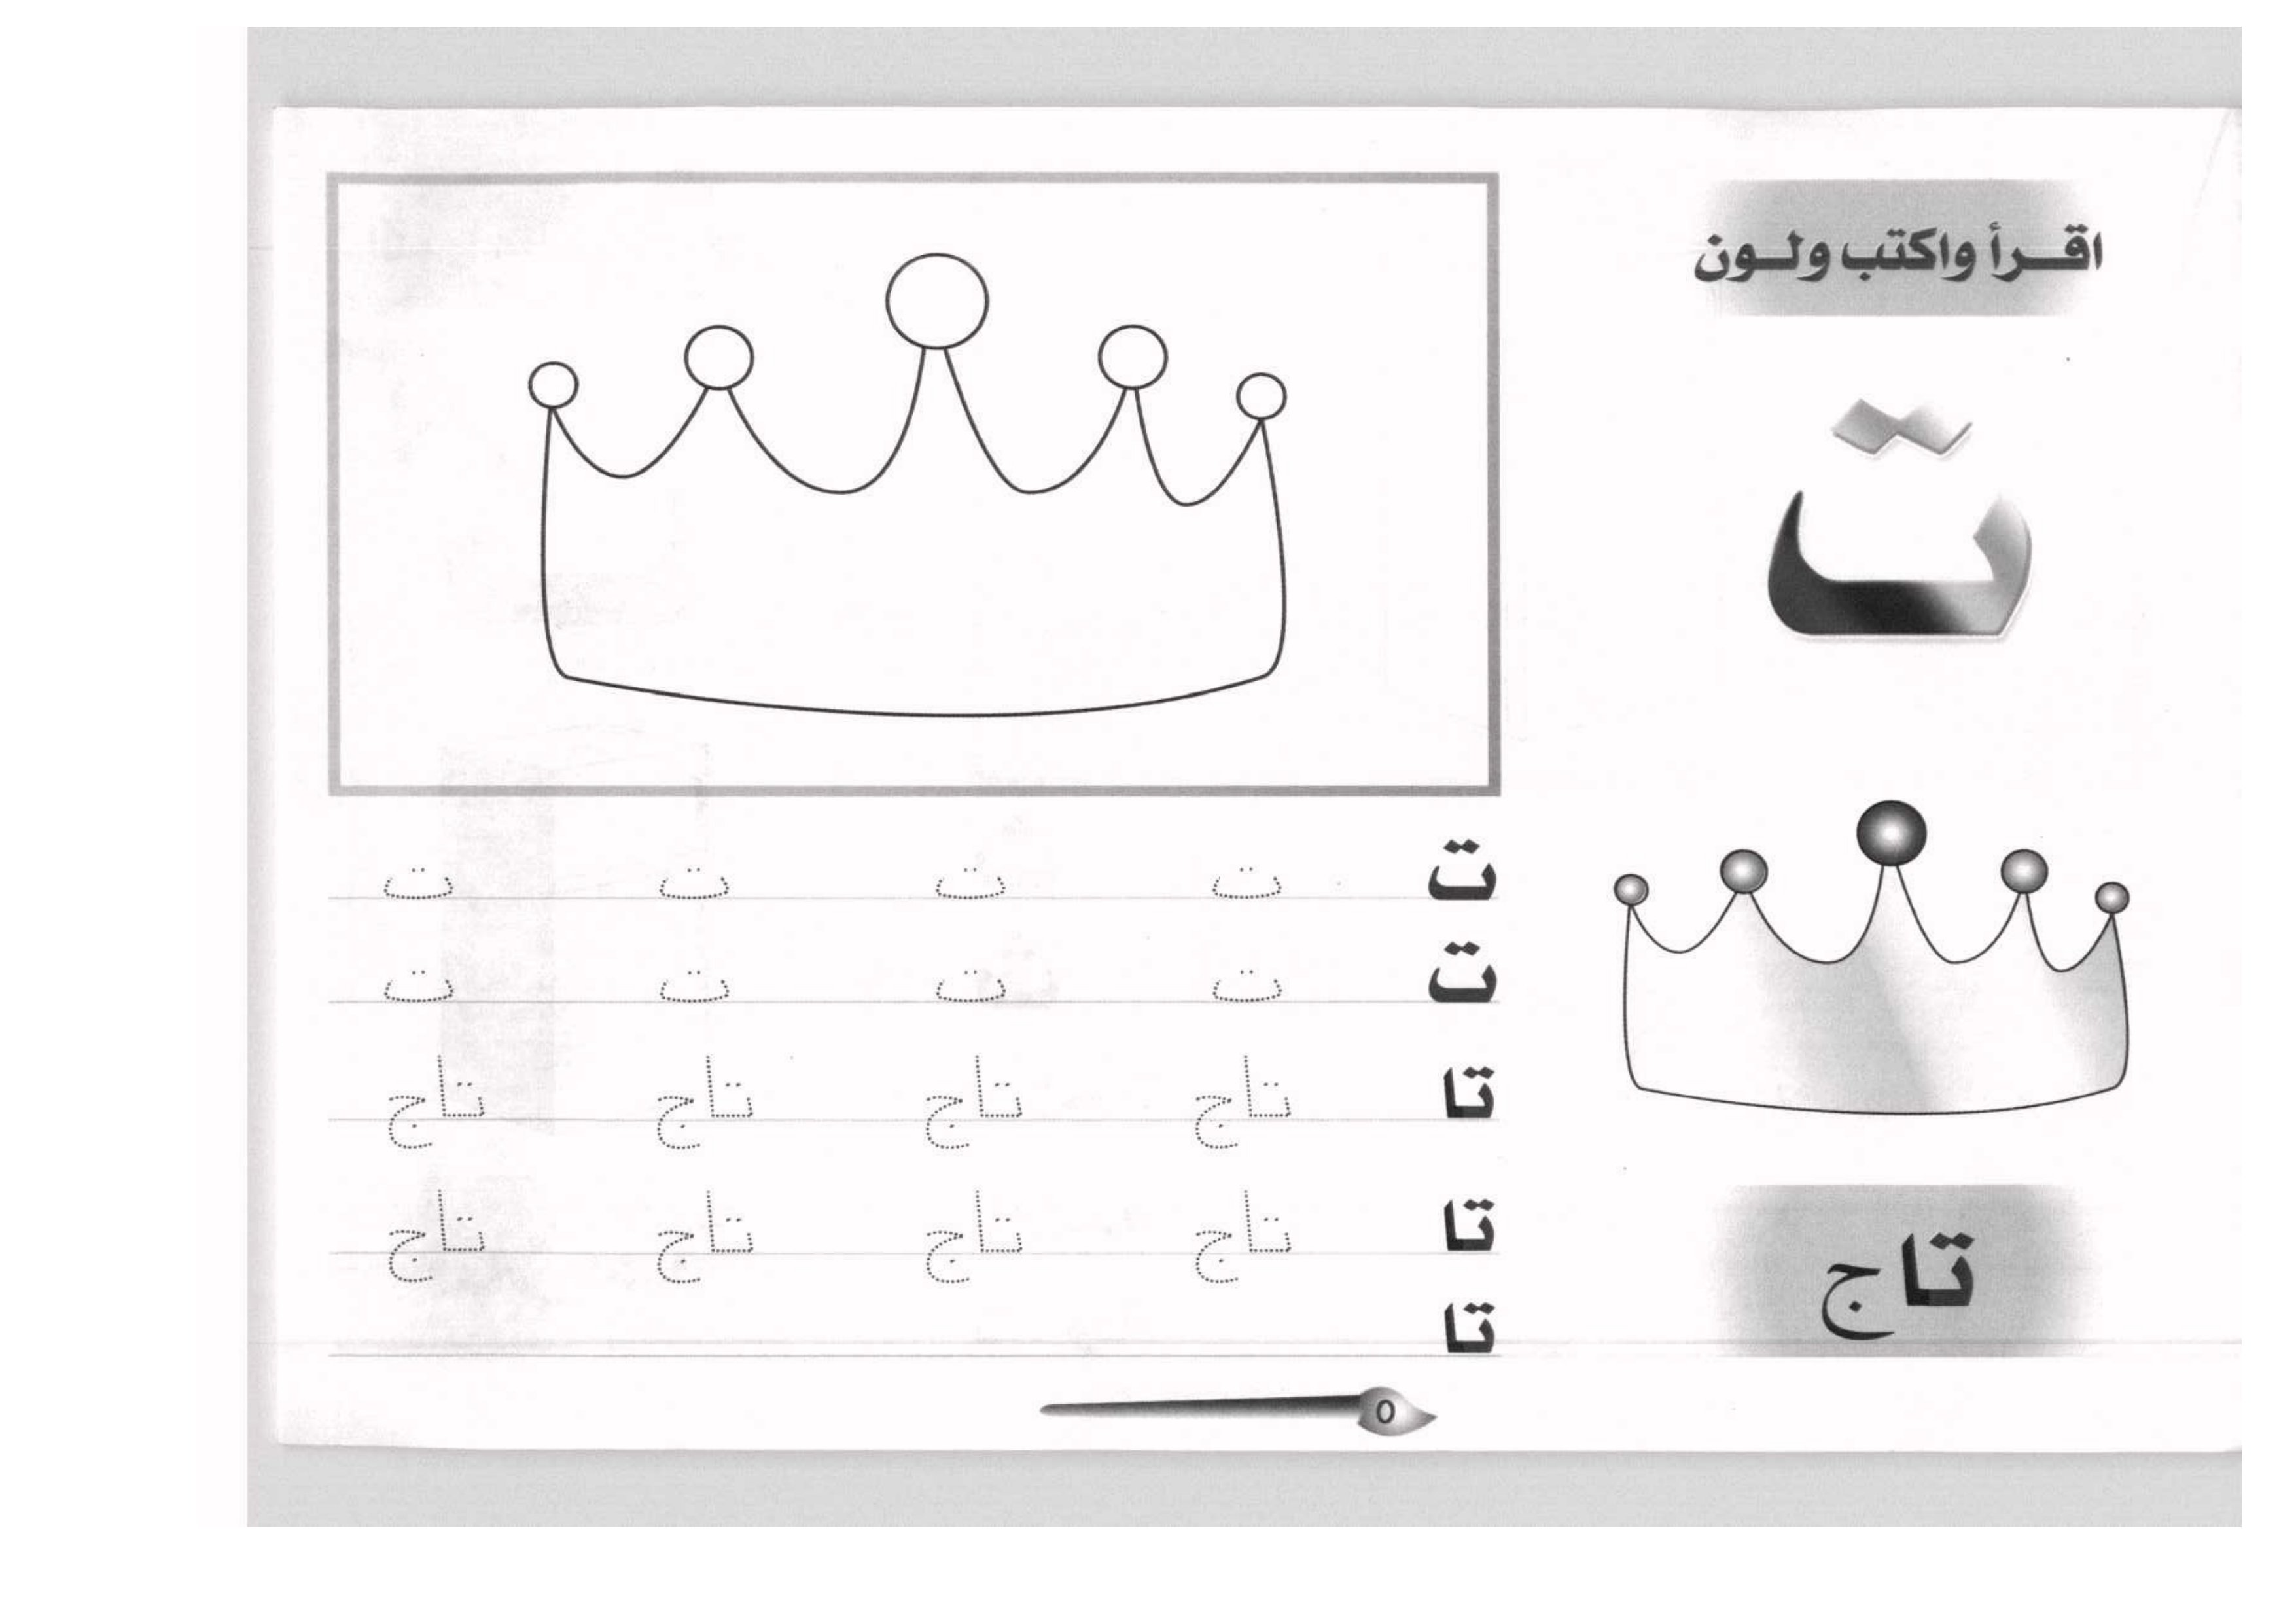 اقــرأ واكتب ولــون
ت
تاج
ت ت ت ت ت
ت ت ت ت ت
تا تاج تاج تاج تاج
تا تاج تاج تاج تاج
تا
٥